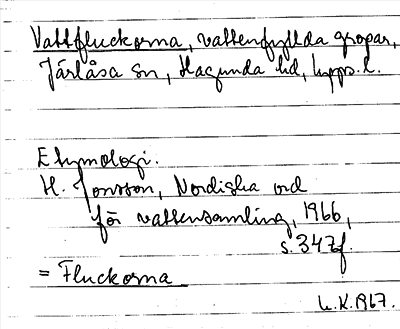 Vattfluckorna, vattenfyllda gropar,
Järlåsa sn, Hagunda hd, Upps. l.
Etymologi.
H. Jonsson, Nordiska ord
för vattensamling, 1966,
s. 347f.
= Fluckorna
L.K.1967.